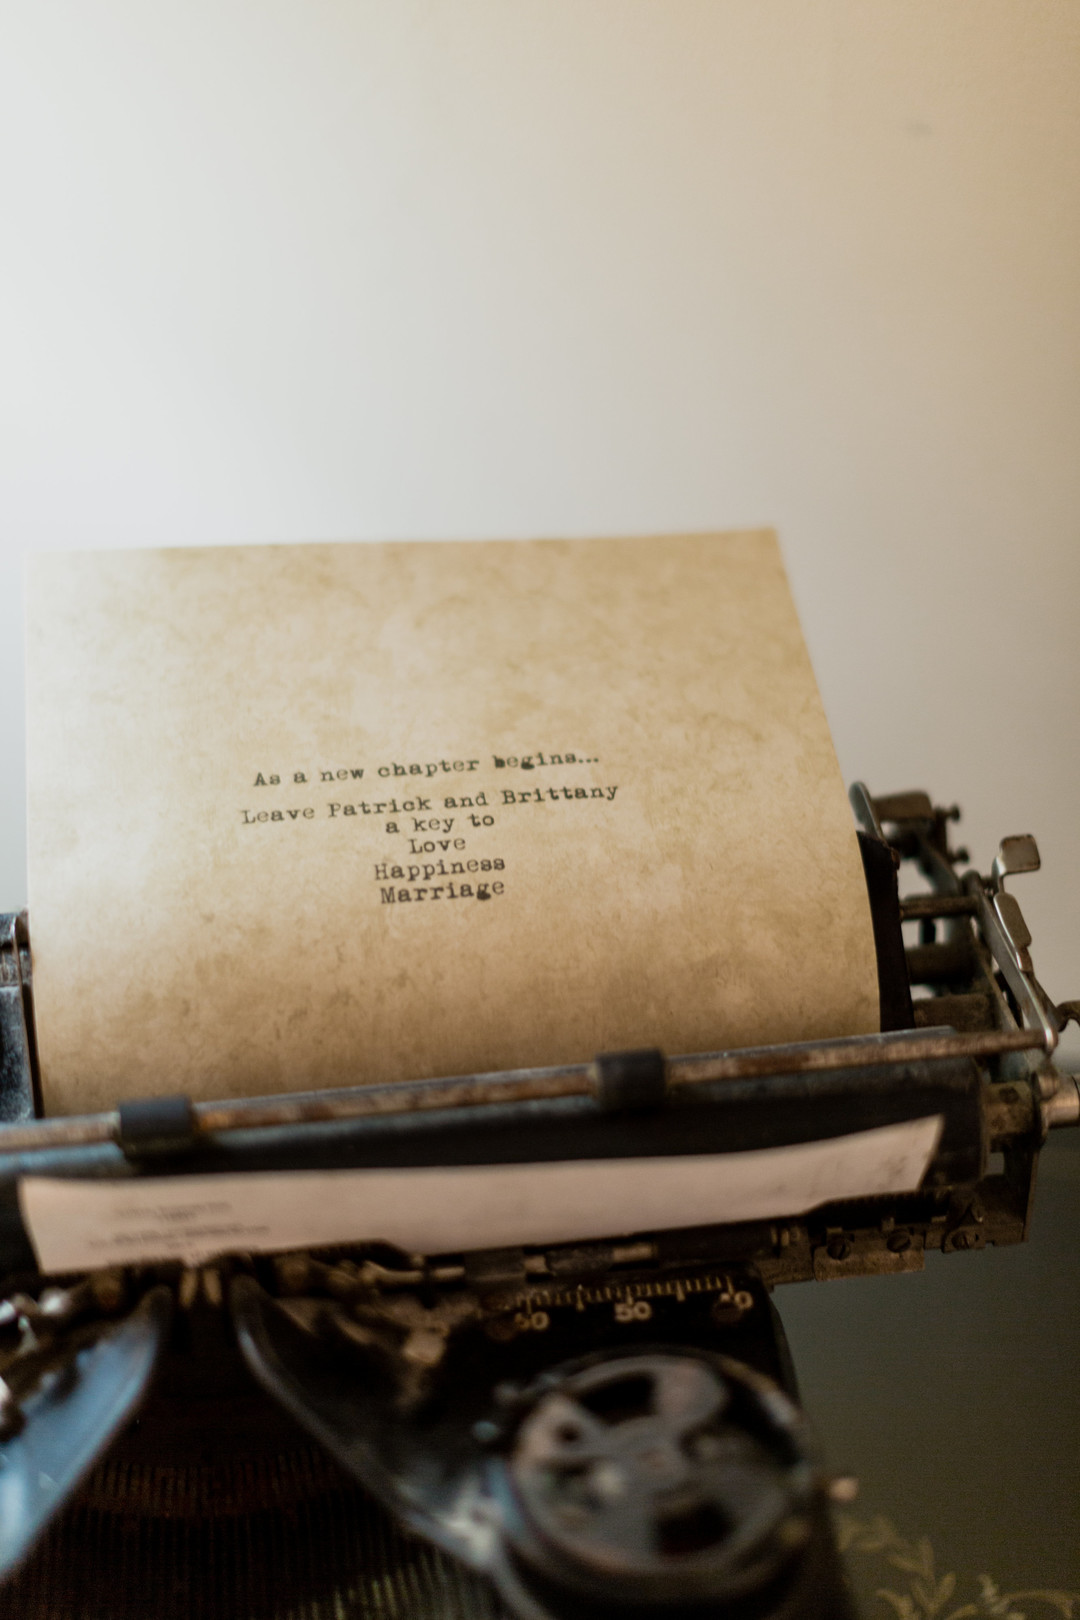 As a new chapter begins...
Leave Patrick and Brittany
a key to
Love
Happiness
Marriage
50